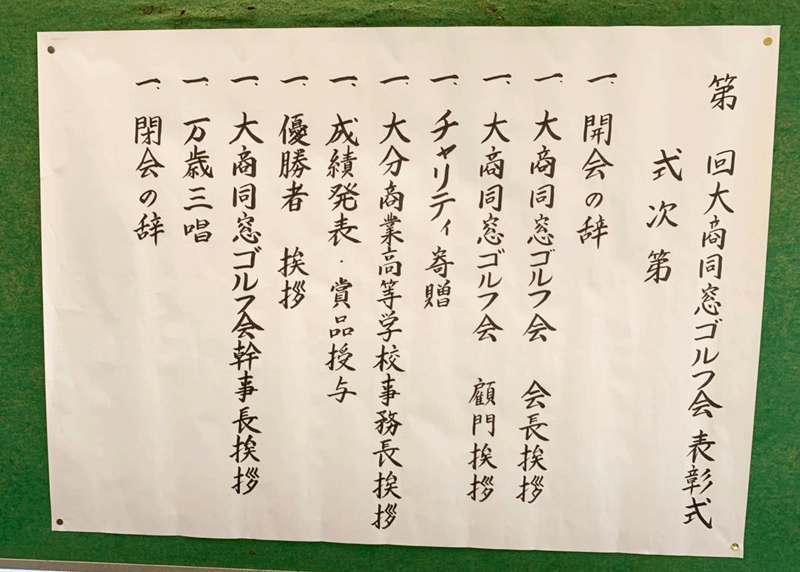 第　回大商同窓ゴルフ会表彰式
式次第
一、開会の辞
一、大商同窓ゴルフ会　会長挨拶
一、大商同窓ゴルフ会　顧問挨拶
一、チャリティ寄贈
一、大分商業高等学校事務長挨拶
一、成績発表・賞品授与
一、優勝者　挨拶
一、大商同窓ゴルフ会幹事長挨拶
一、万歳三唱
一、閉会の辞